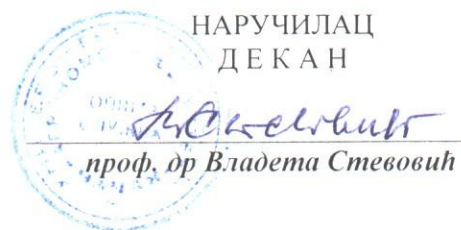 НАРУЧИЛАЦ
Д Е К А Н
проф. др Владета Стевовић